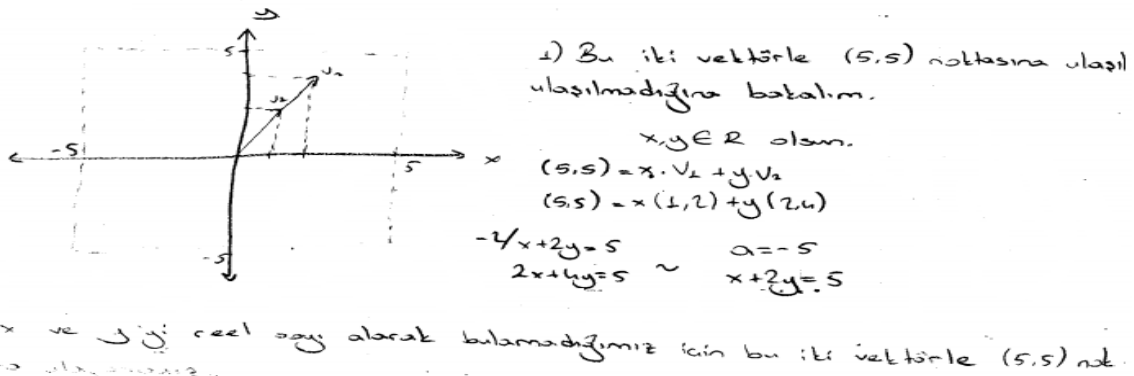 y
5
V₂
V₁
-5
5
x
-5
1) Bu iki vektörle (5,5) noktasına ulaşıl
ulaşılmadığına bakalım.
x,y ∈ R olsun.
(5,5) = x.V₁ + y.V₂
(5,5) = x(1,2) + y(2,4)
-2/x+2y=5 a=-5
2x+4y=5 ~ x+2y=5
x ve y yi reel sayı alarak bulamadığımız için bu iki vektörle (5,5) nok